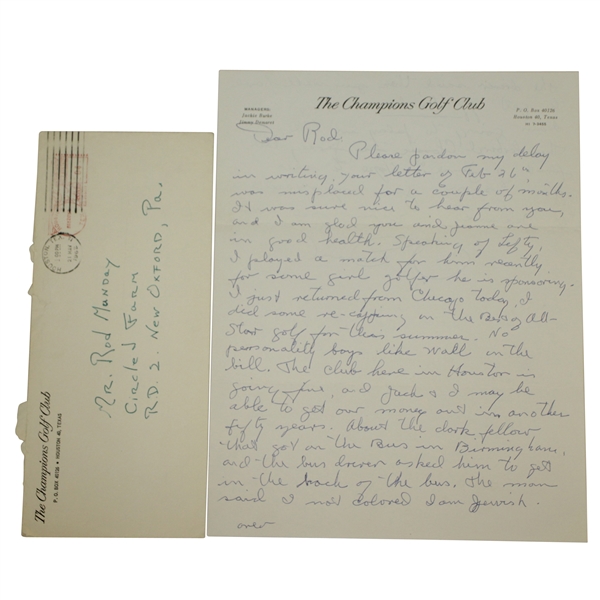 The Champions Golf Club
MANAGERS:
Jackie Burke
Jimmy Demaret
P. O. Box 40726
Houston 40, Texas
Dear Rod,
Please pardon my delay
in writing, your letter of Feb 26th
was misplaced for a couple of months.
It was sure nice to hear from you,
and I am glad you and Jeanne are
in good health. Speaking of Lefty,
I played a match for him recently
for some girl golfer he is sponsoring.
I just returned from Chicago today, I
did some re-capping on the Best of All-
Star golf for this summer. No
personality boys like Wall in the
bill. The club here in Houston is
going fine, and Jack & I may be
able to get our money out in another
fifty years. About the dark fellow
that got on the Bus in Birmingham,
and the bus driver asked him to get
in the back of the bus. The man
said I not colored I am Jewish.
over
MR. ROD MUNDAY
CIRCLE J FARM
R.D. 2. NEW OXFORD, PA.
The Champions Golf Club
P. O. BOX 40726 • HOUSTON 40, TEXAS